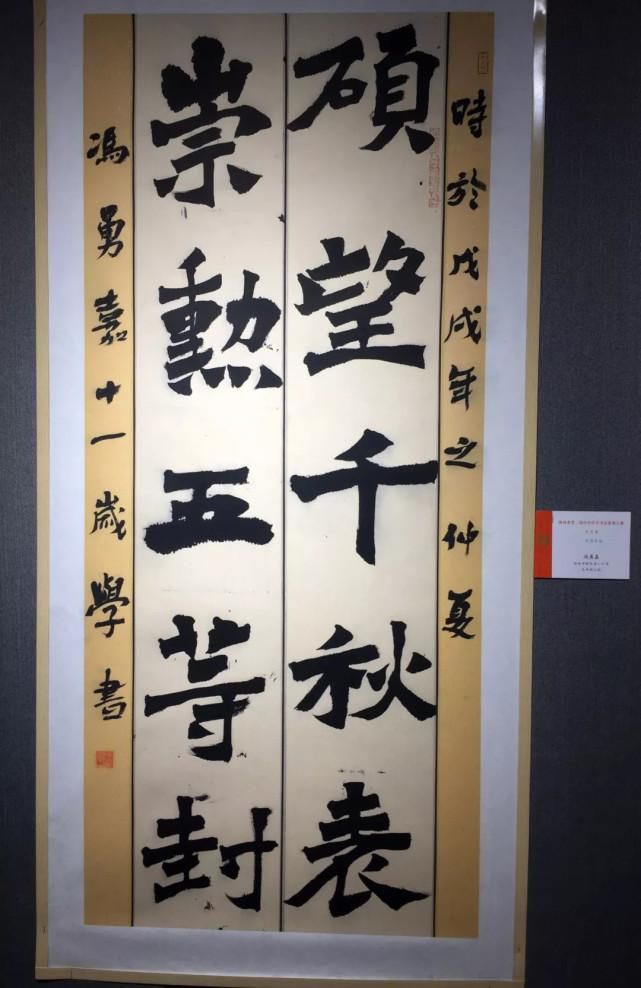 時於戊戌年之仲夏
碩望千秋表
崇勲五等封
馮勇嘉十一歲學書